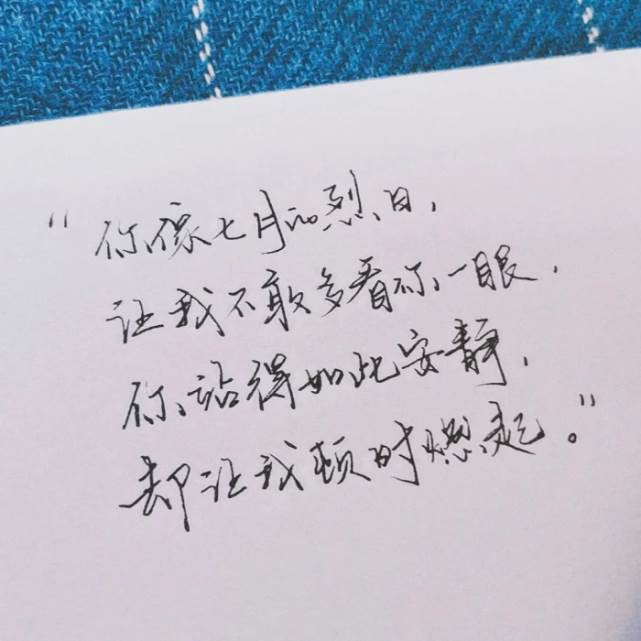 “你像七月的烈日，
让我不敢多看你一眼，
你站得如此安静，
却让我顿时燃起。”